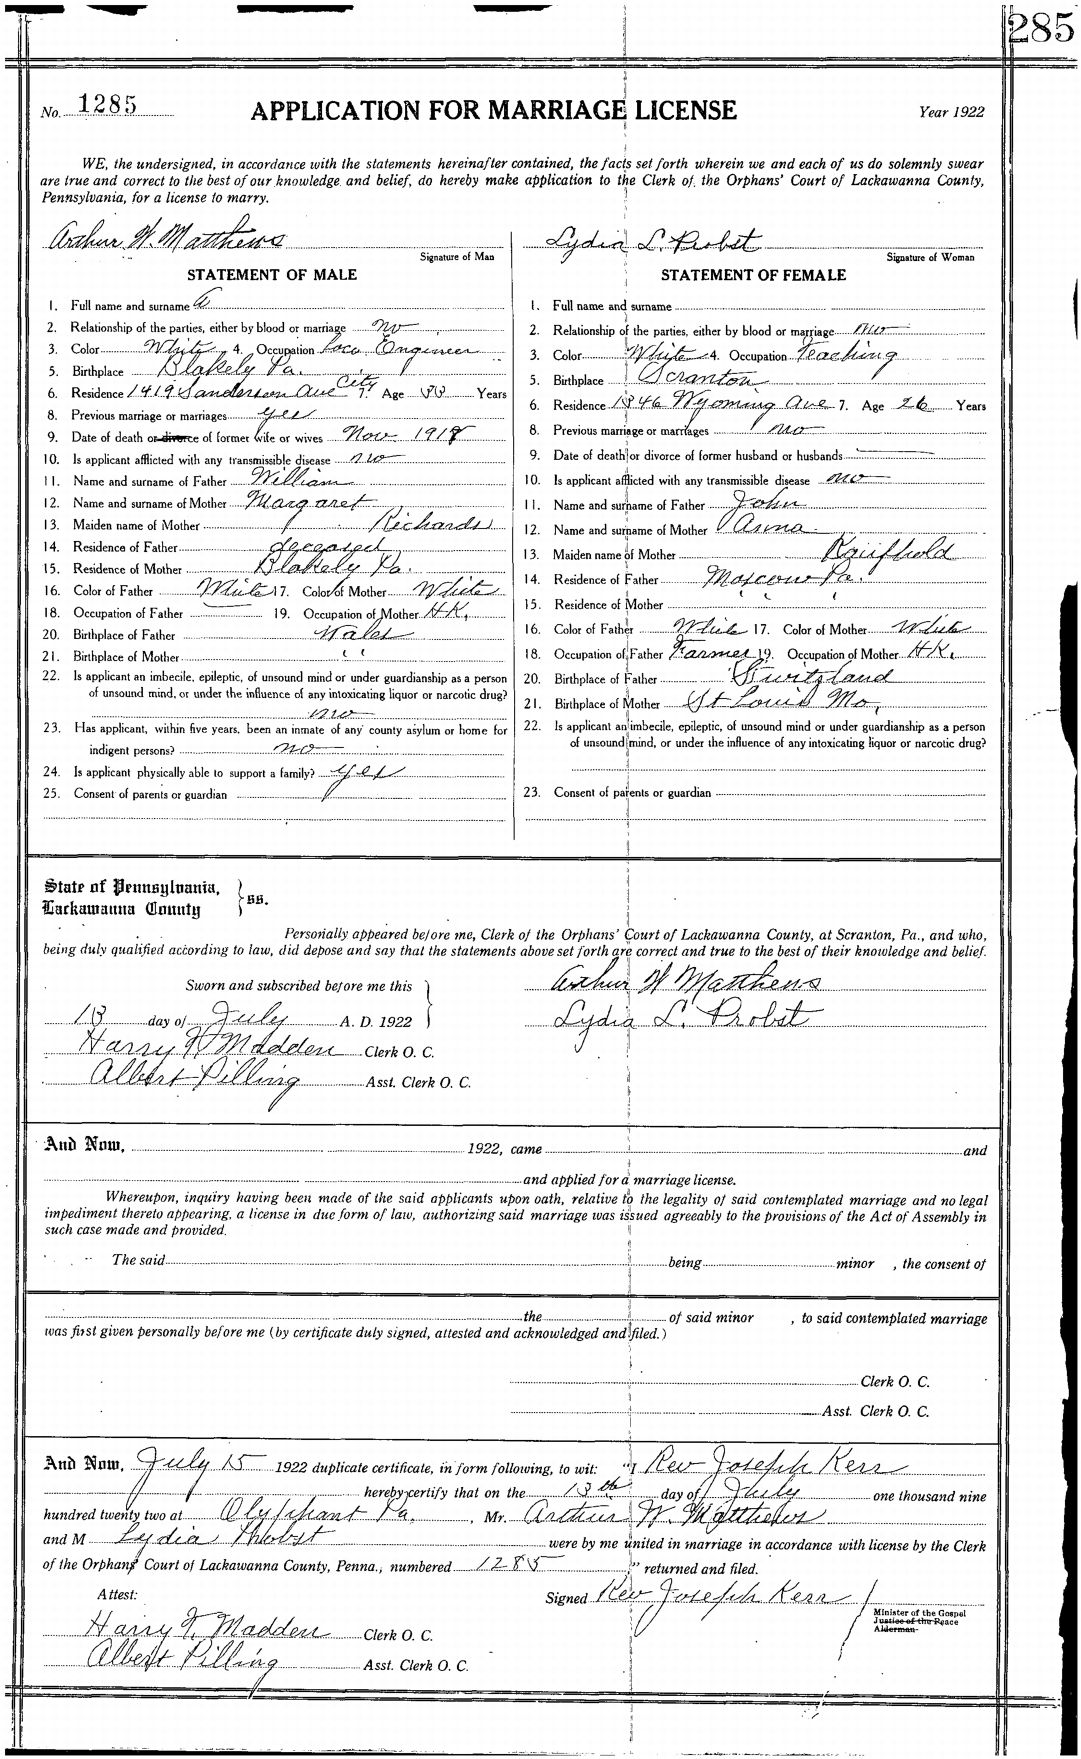 285
No. 1285 APPLICATION FOR MARRIAGE LICENSE Year 1922
WE, the undersigned, in accordance with the statements hereinafter contained, the facts set forth wherein we and each of us do solemnly swear
are true and correct to the best of our knowledge and belief, do hereby make application to the Clerk of the Orphans' Court of Lackawanna County,
Pennsylvania, for a license to marry.
Arthur W. Matthews
Signature of Man
STATEMENT OF MALE
1. Full name and surname a
2. Relationship of the parties, either by blood or marriage no
3. Color White 4. Occupation Loco Engineer
5. Birthplace Blakely Pa.
6. Residence 1419 Sanderson Ave City 7. Age 33 Years
8. Previous marriage or marriages yes
9. Date of death or divorce of former wife or wives Nov. 1918
10. Is applicant afflicted with any transmissible disease no
11. Name and surname of Father William
12. Name and surname of Mother Margaret
13. Maiden name of Mother Richards
14. Residence of Father deceased
15. Residence of Mother Blakely Pa.
16. Color of Father White 17. Color of Mother White
18. Occupation of Father — 19. Occupation of Mother H.K.
20. Birthplace of Father Wales
21. Birthplace of Mother " "
22. Is applicant an imbecile, epileptic, of unsound mind or under guardianship as a person
of unsound mind, or under the influence of any intoxicating liquor or narcotic drug?
no
23. Has applicant, within five years, been an inmate of any county asylum or home for
indigent persons? no
24. Is applicant physically able to support a family? yes
25. Consent of parents or guardian
Lydia L. Probst
Signature of Woman
STATEMENT OF FEMALE
1. Full name and surname
2. Relationship of the parties, either by blood or marriage no
3. Color White 4. Occupation Teaching
5. Birthplace Scranton
6. Residence 1346 Wyoming Ave 7. Age 26 Years
8. Previous marriage or marriages no
9. Date of death or divorce of former husband or husbands —
10. Is applicant afflicted with any transmissible disease no
11. Name and surname of Father John
12. Name and surname of Mother Anna
13. Maiden name of Mother Kauffold
14. Residence of Father Moscow Pa.
15. Residence of Mother " "
16. Color of Father White 17. Color of Mother White
18. Occupation of Father Farmer 19. Occupation of Mother H.K.
20. Birthplace of Father Switzland
21. Birthplace of Mother St Louis Mo.
22. Is applicant an imbecile, epileptic, of unsound mind or under guardianship as a person
of unsound mind, or under the influence of any intoxicating liquor or narcotic drug?
23. Consent of parents or guardian
State of Pennsylvania,
Lackawanna County } ss.
Personally appeared before me, Clerk of the Orphans' Court of Lackawanna County, at Scranton, Pa., and who,
being duly qualified according to law, did depose and say that the statements above set forth are correct and true to the best of their knowledge and belief.
Sworn and subscribed before me this Arthur W Matthews
13 day of July A. D. 1922 Lydia L. Probst
Harry F. Madden Clerk O. C.
Albert Pilling Asst. Clerk O. C.
And Now, 1922, came and
and applied for a marriage license.
Whereupon, inquiry having been made of the said applicants upon oath, relative to the legality of said contemplated marriage and no legal
impediment thereto appearing, a license in due form of law, authorizing said marriage was issued agreeably to the provisions of the Act of Assembly in
such case made and provided.
The said being minor , the consent of
the of said minor , to said contemplated marriage
was first given personally before me (by certificate duly signed, attested and acknowledged and filed.)
Clerk O. C.
Asst. Clerk O. C.
And Now, July 15 1922 duplicate certificate, in form following, to wit: "I Rev Joseph Kerr
hereby certify that on the 13th day of July one thousand nine
hundred twenty two at Olyphant Pa. Mr. Arthur W. Matthews
and M Lydia Probst were by me united in marriage in accordance with license by the Clerk
of the Orphans' Court of Lackawanna County, Penna., numbered 1285 " returned and filed.
Attest: Signed Rev Joseph Kerr
Minister of the Gospel
Justice of the Peace
Alderman
Harry F. Madden Clerk O. C.
Albert Pilling Asst. Clerk O. C.